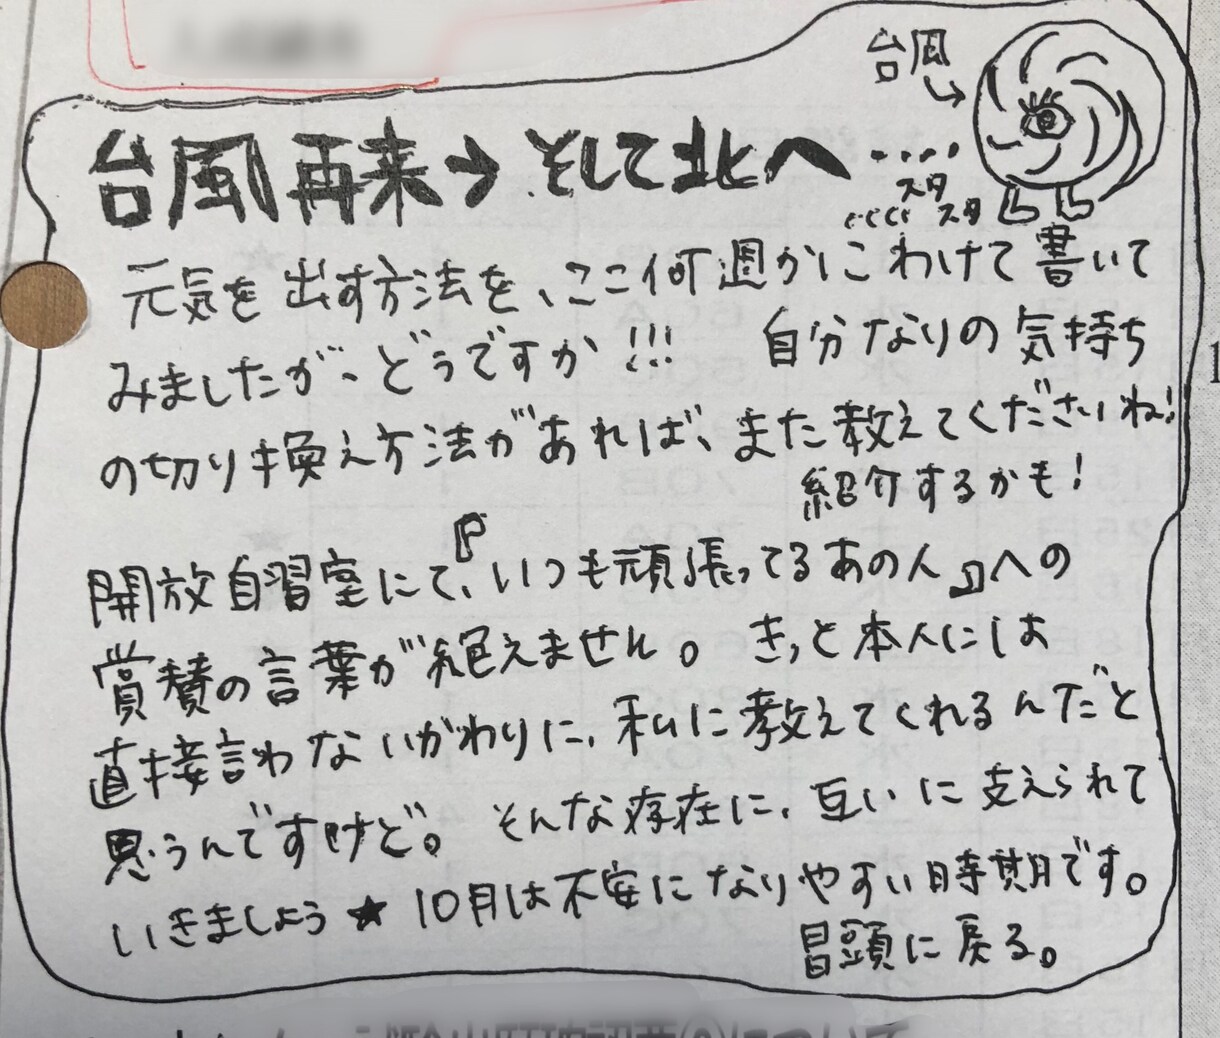 台風
台風再来→そして北へ….
スタ
スタ
元気を出す方法を、ここ何週かにわけて書いて
みましたが、どうですか!!! 自分なりの気持ち
の切り換え方法があれば、また教えてくださいね!
紹介するかも!
開放自習室にて、『いつも頑張ってるあの人』への
賞賛の言葉が絶えません。きっと本人には
直接言わないかわりに、私に教えてくれるんだと
思うんですけど。そんな存在に、互いに支えられて
いきましょう★10月は不安になりやすい時期です。
冒頭に戻る。